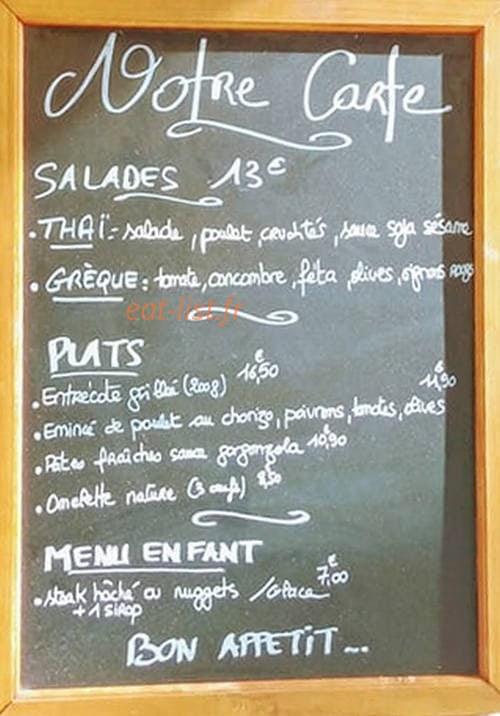 Notre Carte
SALADES 13€
• THAÏ: salade, poulet, crudités, sauce soja sésame
• GRÈQUE: tomate, concombre, féta, olives, oignons rouges
eat-list.fr
PLATS
• Entrecôte grillée (200g) 16,50€
• Emincé de poulet au chorizo, poivrons, tomates, olives 11,90€
• Pâtes fraîches sauce gorgonzola 10,90
• Omelette nature (3 oeufs) 8,50
MENU ENFANT
• Steak hâché ou nuggets /Glace 7,00€
+ 1 SIROP
BON APPETIT...